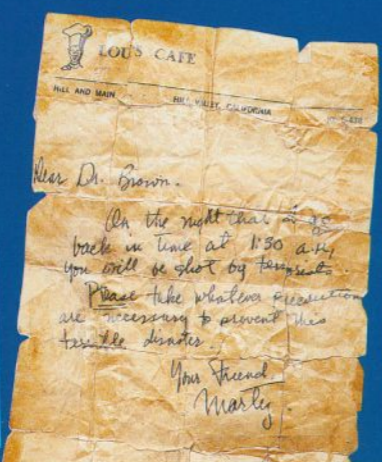 LOU'S CAFE
HILL AND MAIN
HILL VALLEY, CALIFORNIA
Dear Dr. Brown.
On the night that I go
back in time at 1:30 a.m,
you will be shot by terrorists.
Please take whatever precautions
are necessary to prevent this
terrible disaster.
Your Friend
Marty.